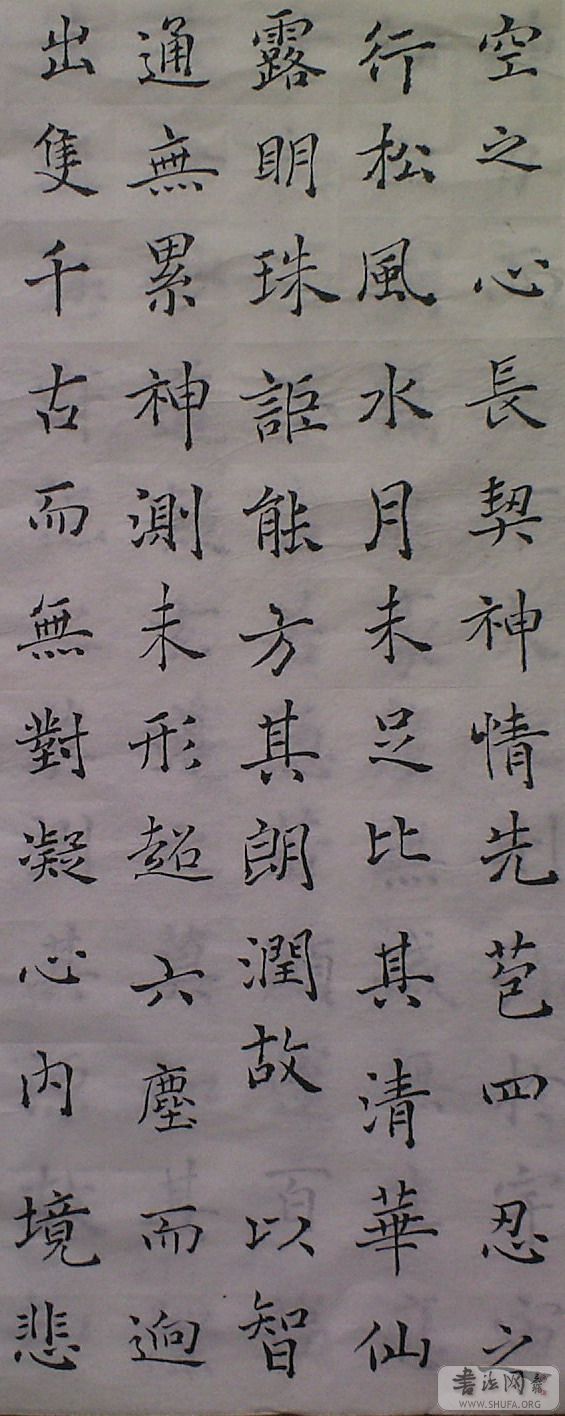 空之心長契神情先苞四忍之
行松風水月未足比其清華仙
露明珠詎能方其朗潤故以智
通無累神測未形超六塵而逈
出隻千古而無對凝心內境悲
書法网
WWW.SHUFA.ORG